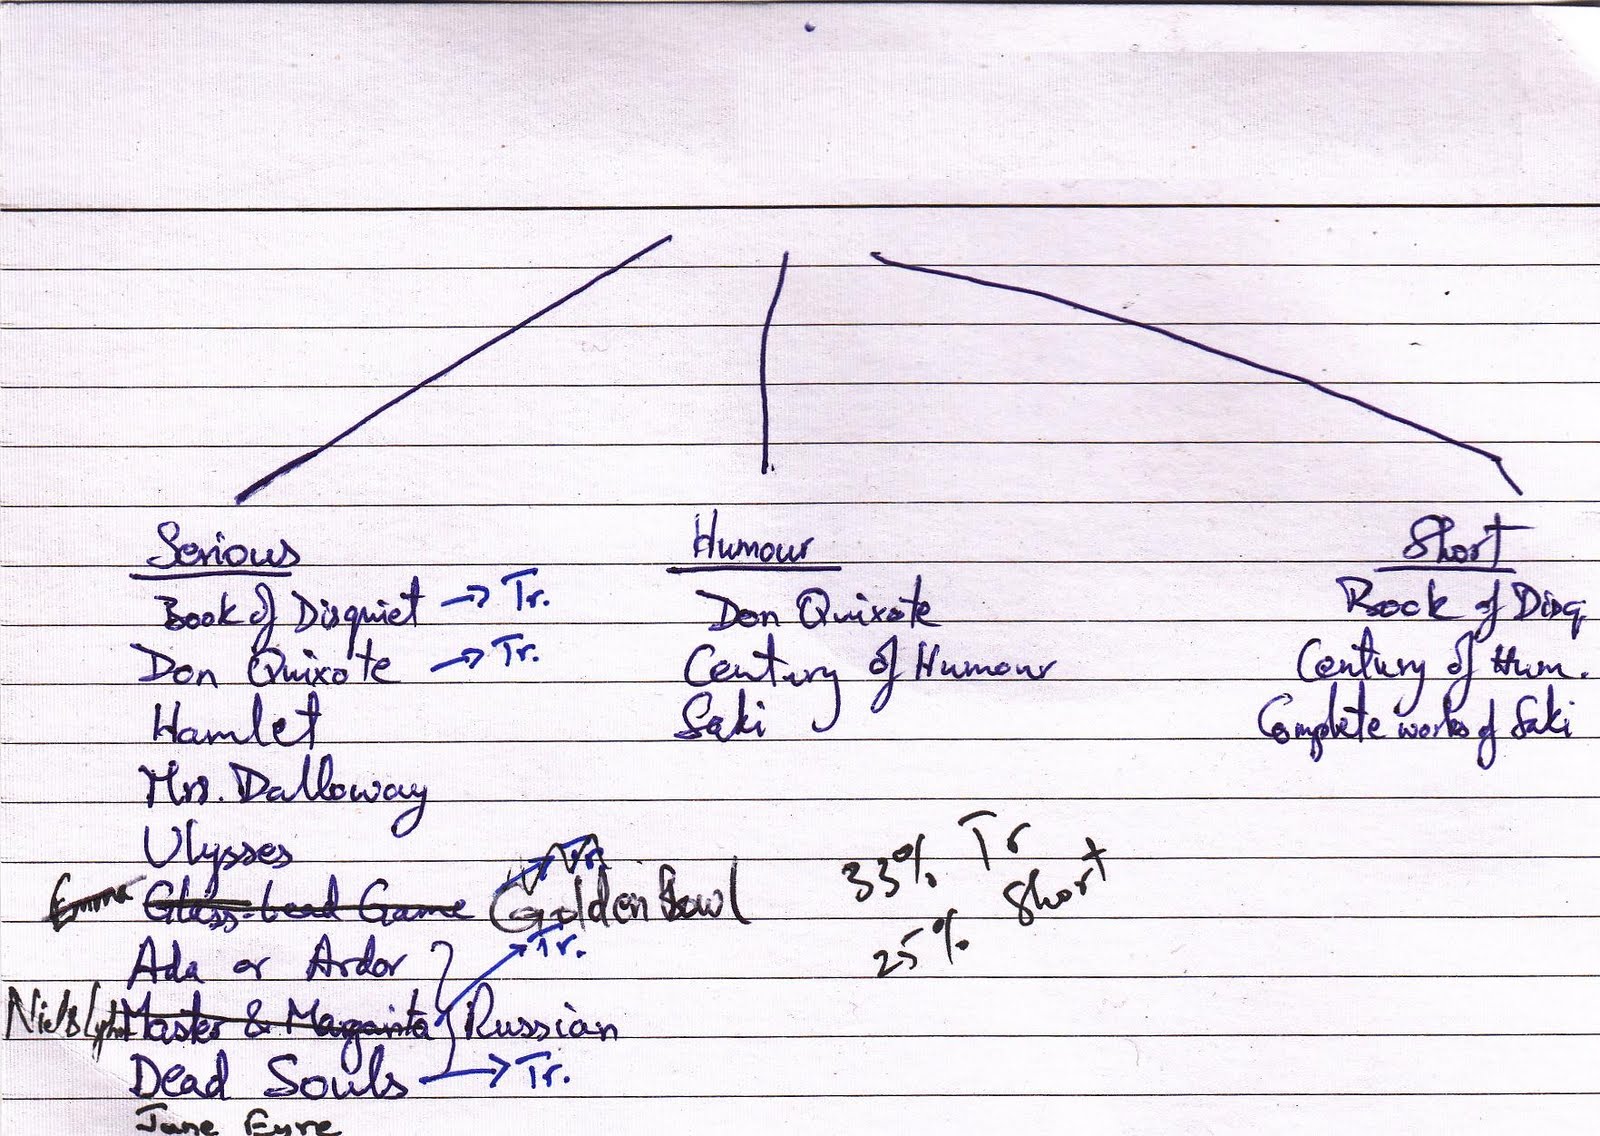 Serious Humour Short
Book of Disquiet → Tr. Don Quixote Book of Disq
Don Quixote → Tr. Century of Humour Century of Hum.
Hamlet Saki Complete works of Saki
Mrs. Dalloway
Ulysses Tr. 33% Tr
Emma Glass-bead Game Golden Bowl 25% Short
Ada or Ardor Tr.
Niels Lyhne Master & Margarita Russian
Dead Souls → Tr.
Jane Eyre